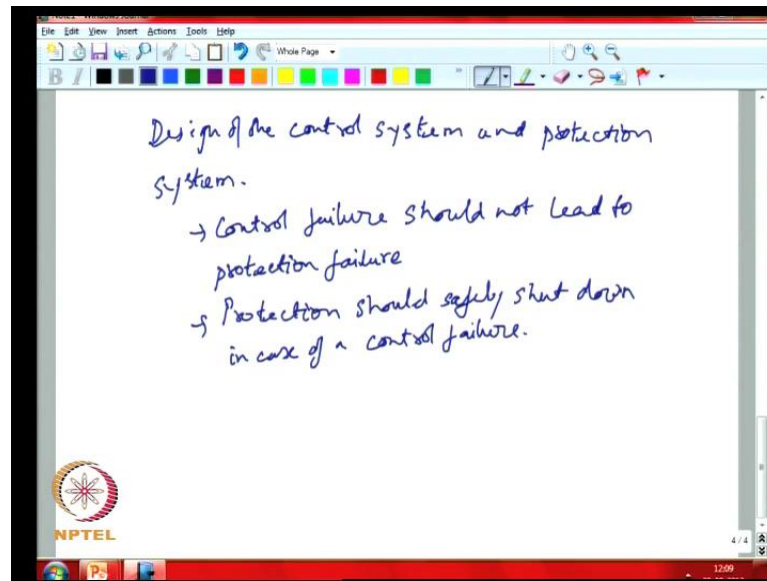 File Edit View Insert Actions Tools Help
Whole Page
B I
Design of the control system and protection
system.
→ Control failure should not lead to
protection failure
→ Protection should safely shut down
in case of a control failure.
NPTEL
4 / 4
12:09